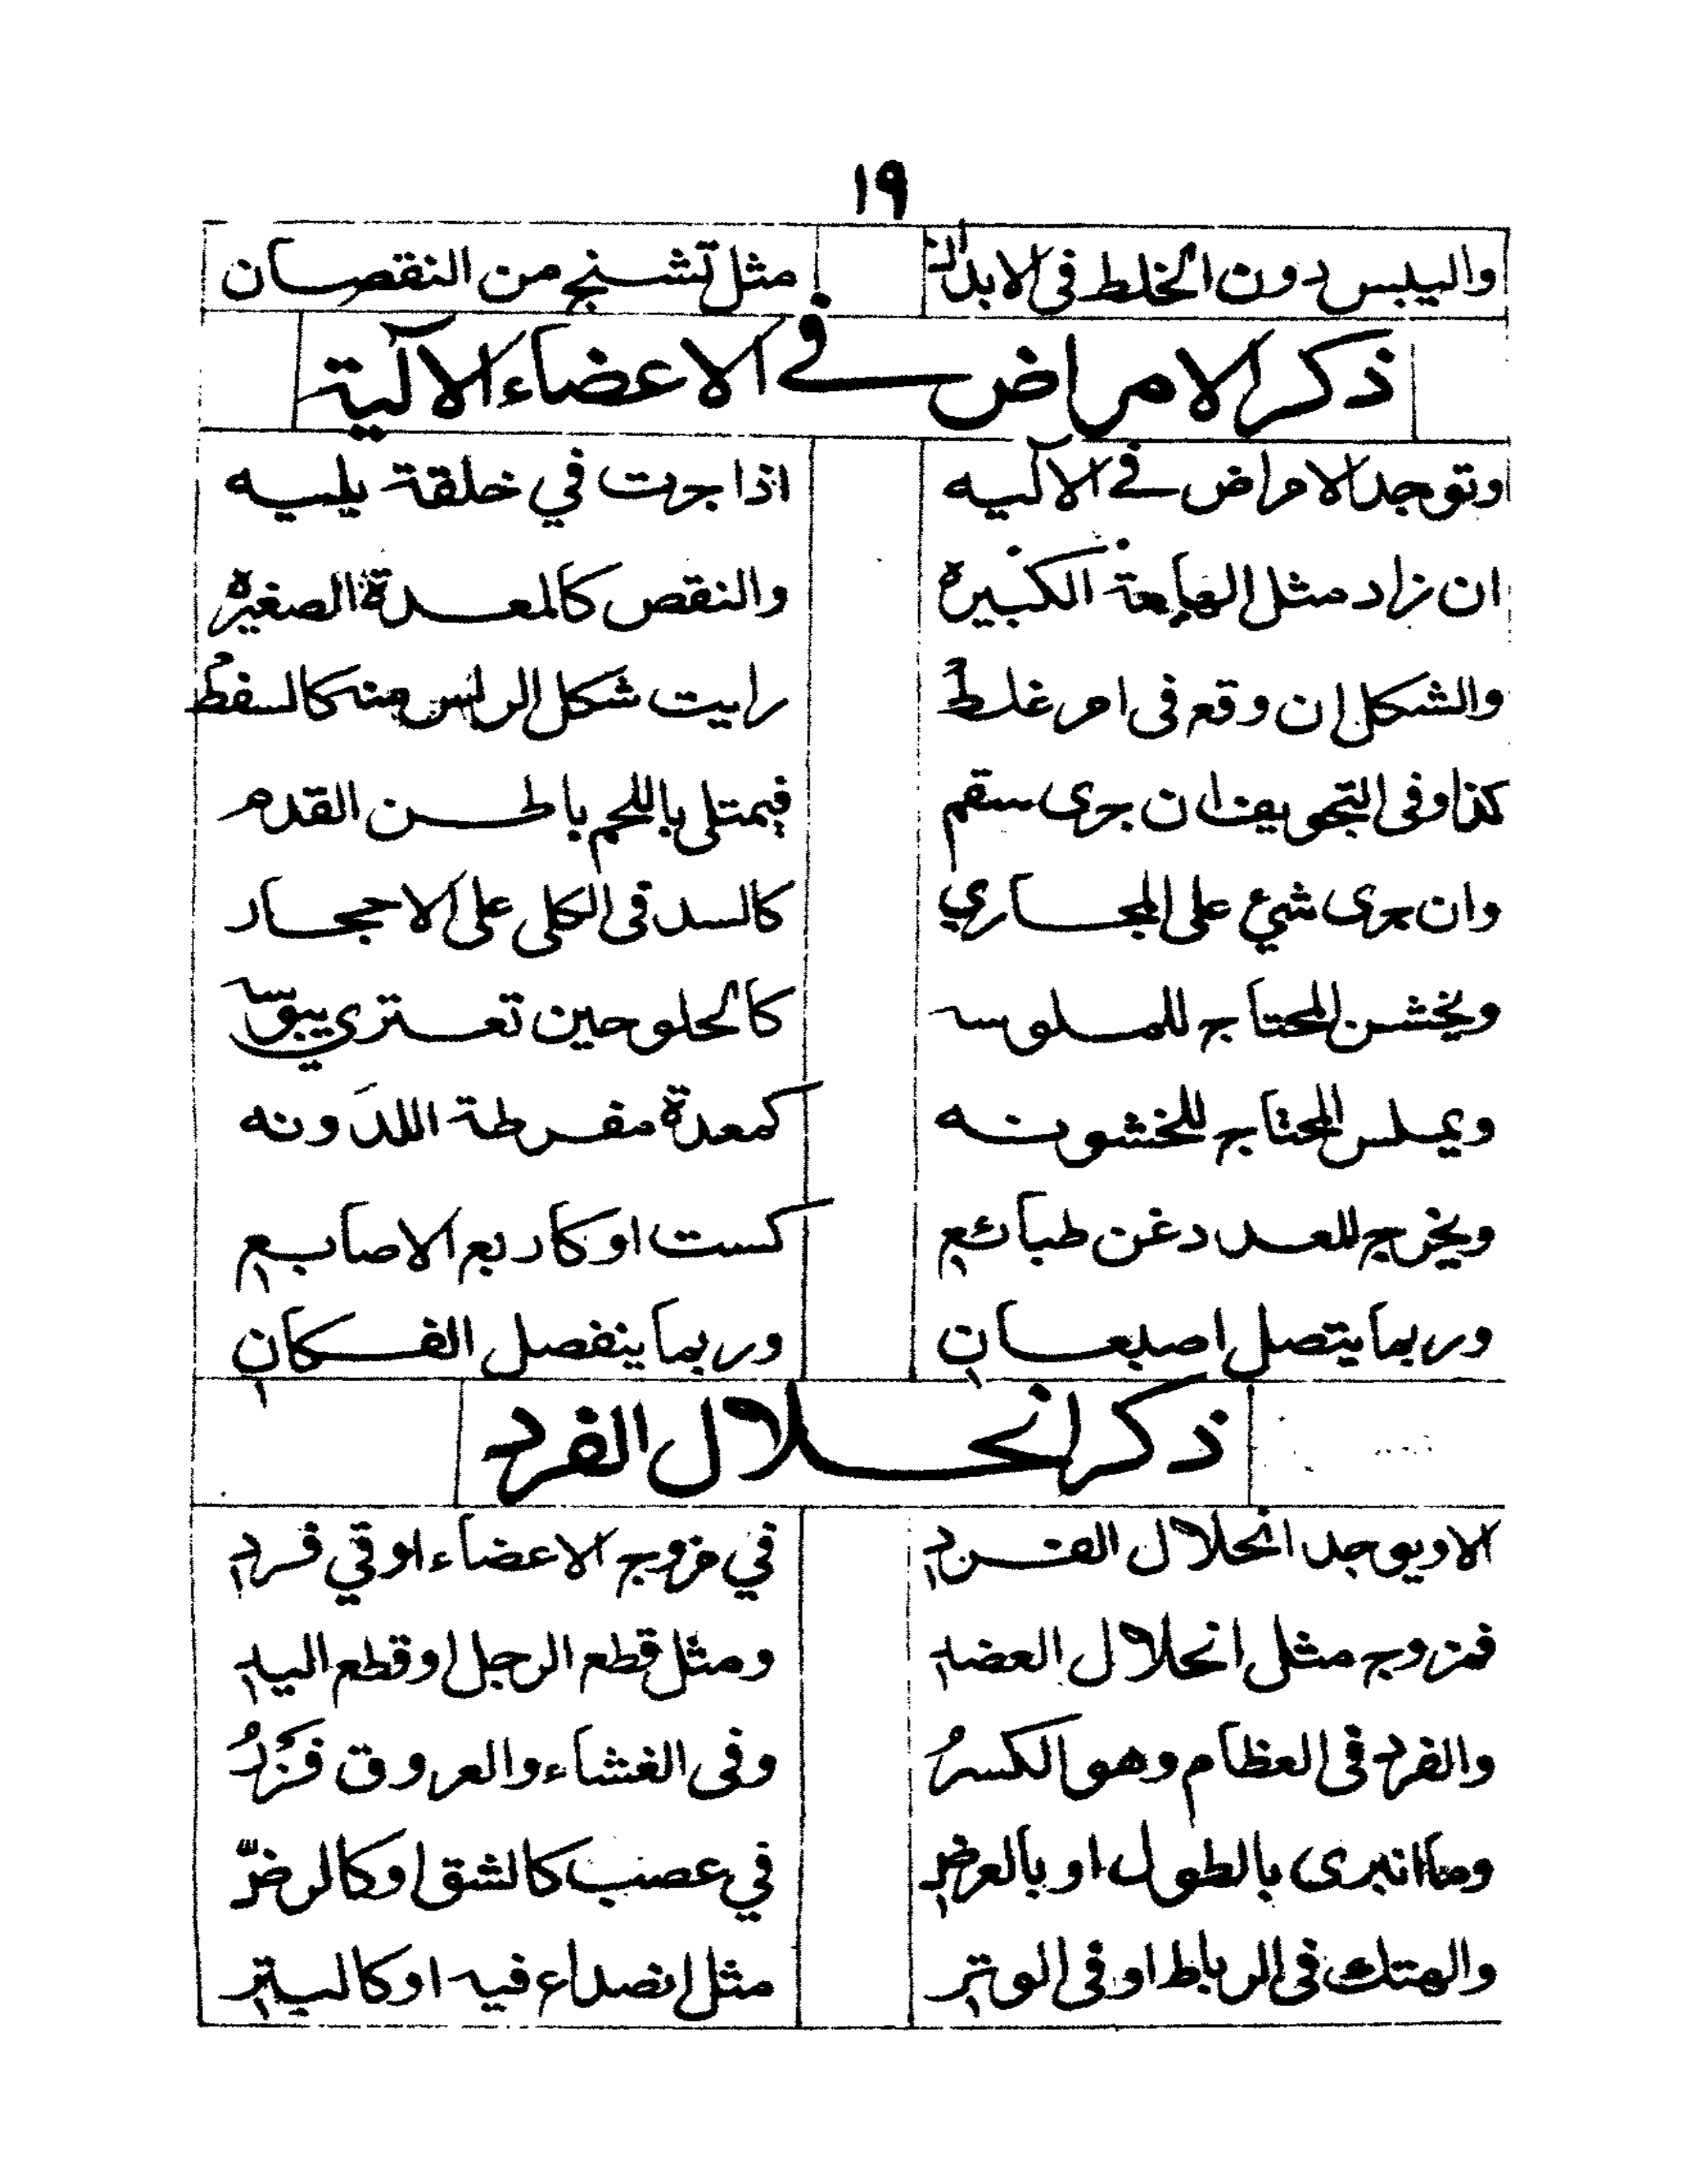 ١٩
واليبس دون الخلط فى الابدان مثل تشنج من النقصان
ذكر الامراض في الاعضاء الآلية
وتوجد الامراض في الآليه اذا جرت في خلقة يليه
ان زاد مثل الهامة الكبيره والنقص كالمعدة الصغيره
والشكل ان وقع فى امر غلطُ رايت شكل الراس منه كالسفطُ
كذا وفى التجويف ان جرى سقم فيمتلى باللحم باطن القدم
وان جرى شئ على المجاري كالسد فى الكلى على الاحجار
ويخشن المحتاج للملوسه كالحلو حين تعتري يبوسه
ويملس المحتاج للخشونه كمعدة مفرطة اللدَونه
ويخرج للعدد عن طبائعِ كست او كاربع الاصابعِ
وربما يتصل اصبعانِ وربما ينفصل الفكانِ
ذكر انحلال الفرد
الا ويوجد انحلال الفردِ في مزوج الاعضاء او في فردِ
فمزوج مثل انحلال العضدِ ومثل قطع الرجل او قطع اليدِ
والفرد فى العظام وهو الكسرُ وفى الغشاء والعروق فَزْرُ
وما انبرى بالطول او بالعرضِ في عصب كالشق او كالرضّ
والهتك فى الرباط او فى الوترِ مثل انصداع فيه او كالبترِ